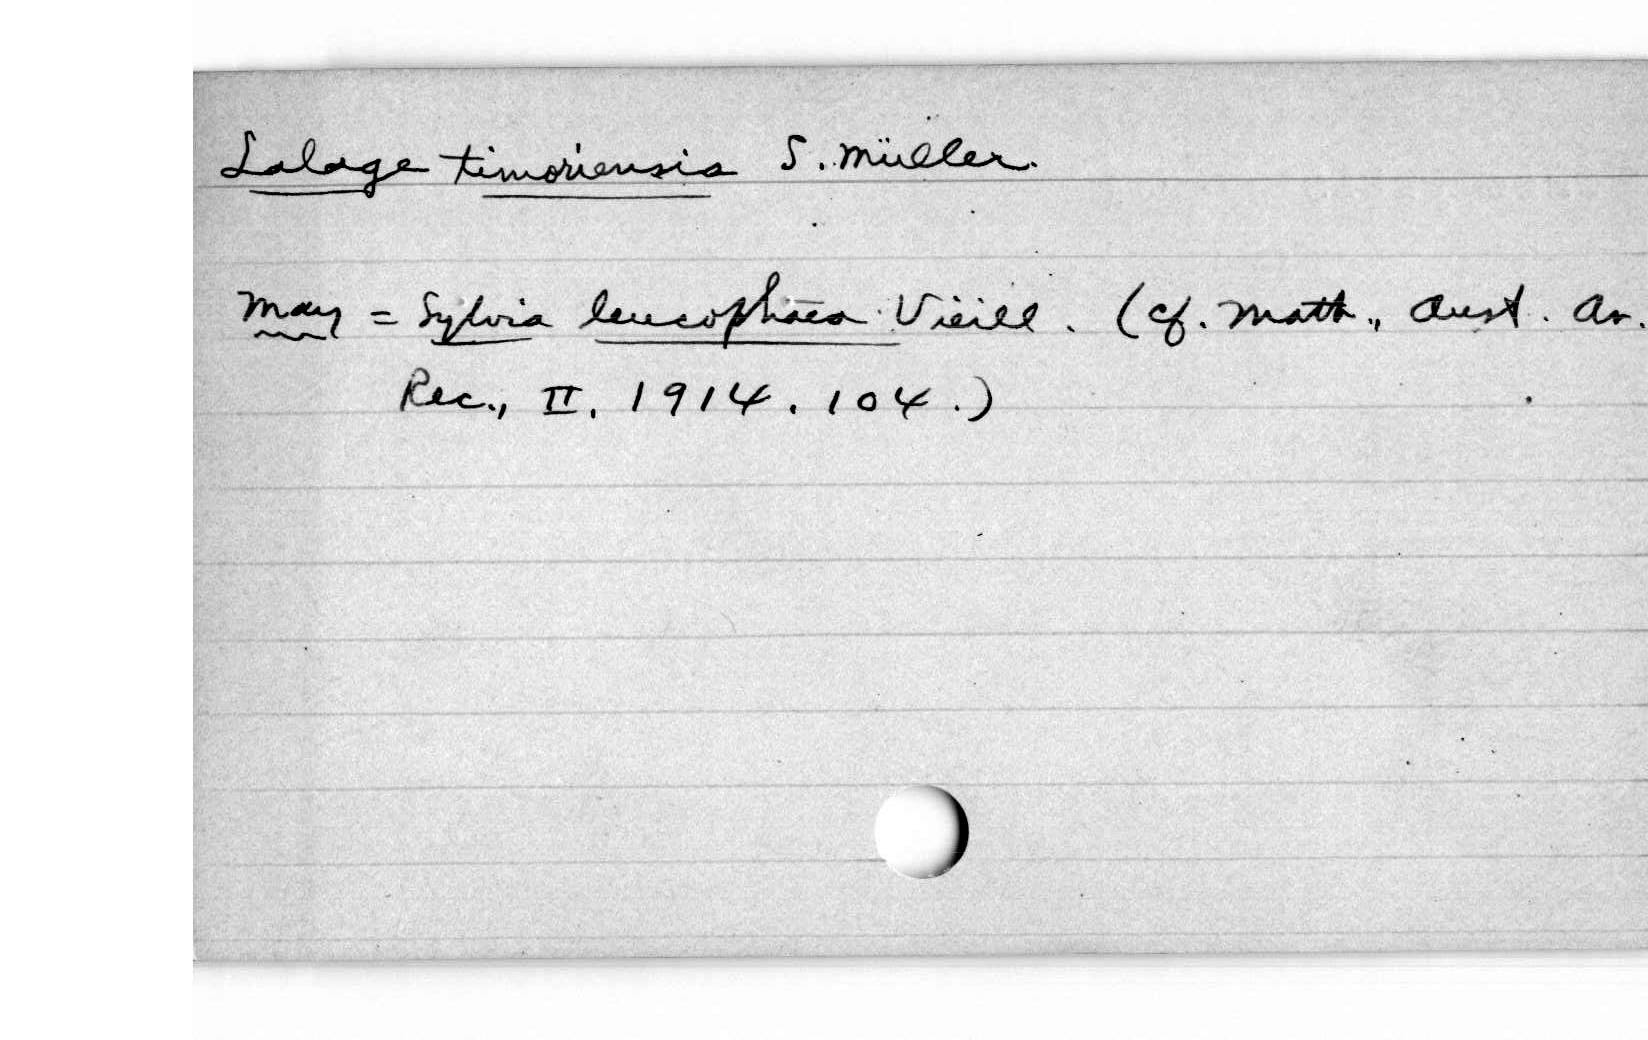 Lalage timoriensis S. Müller.
May = Sylvia leucophaea Vieill. (cf. Math., Aust. Av.
Rec., II, 1914, 104.)